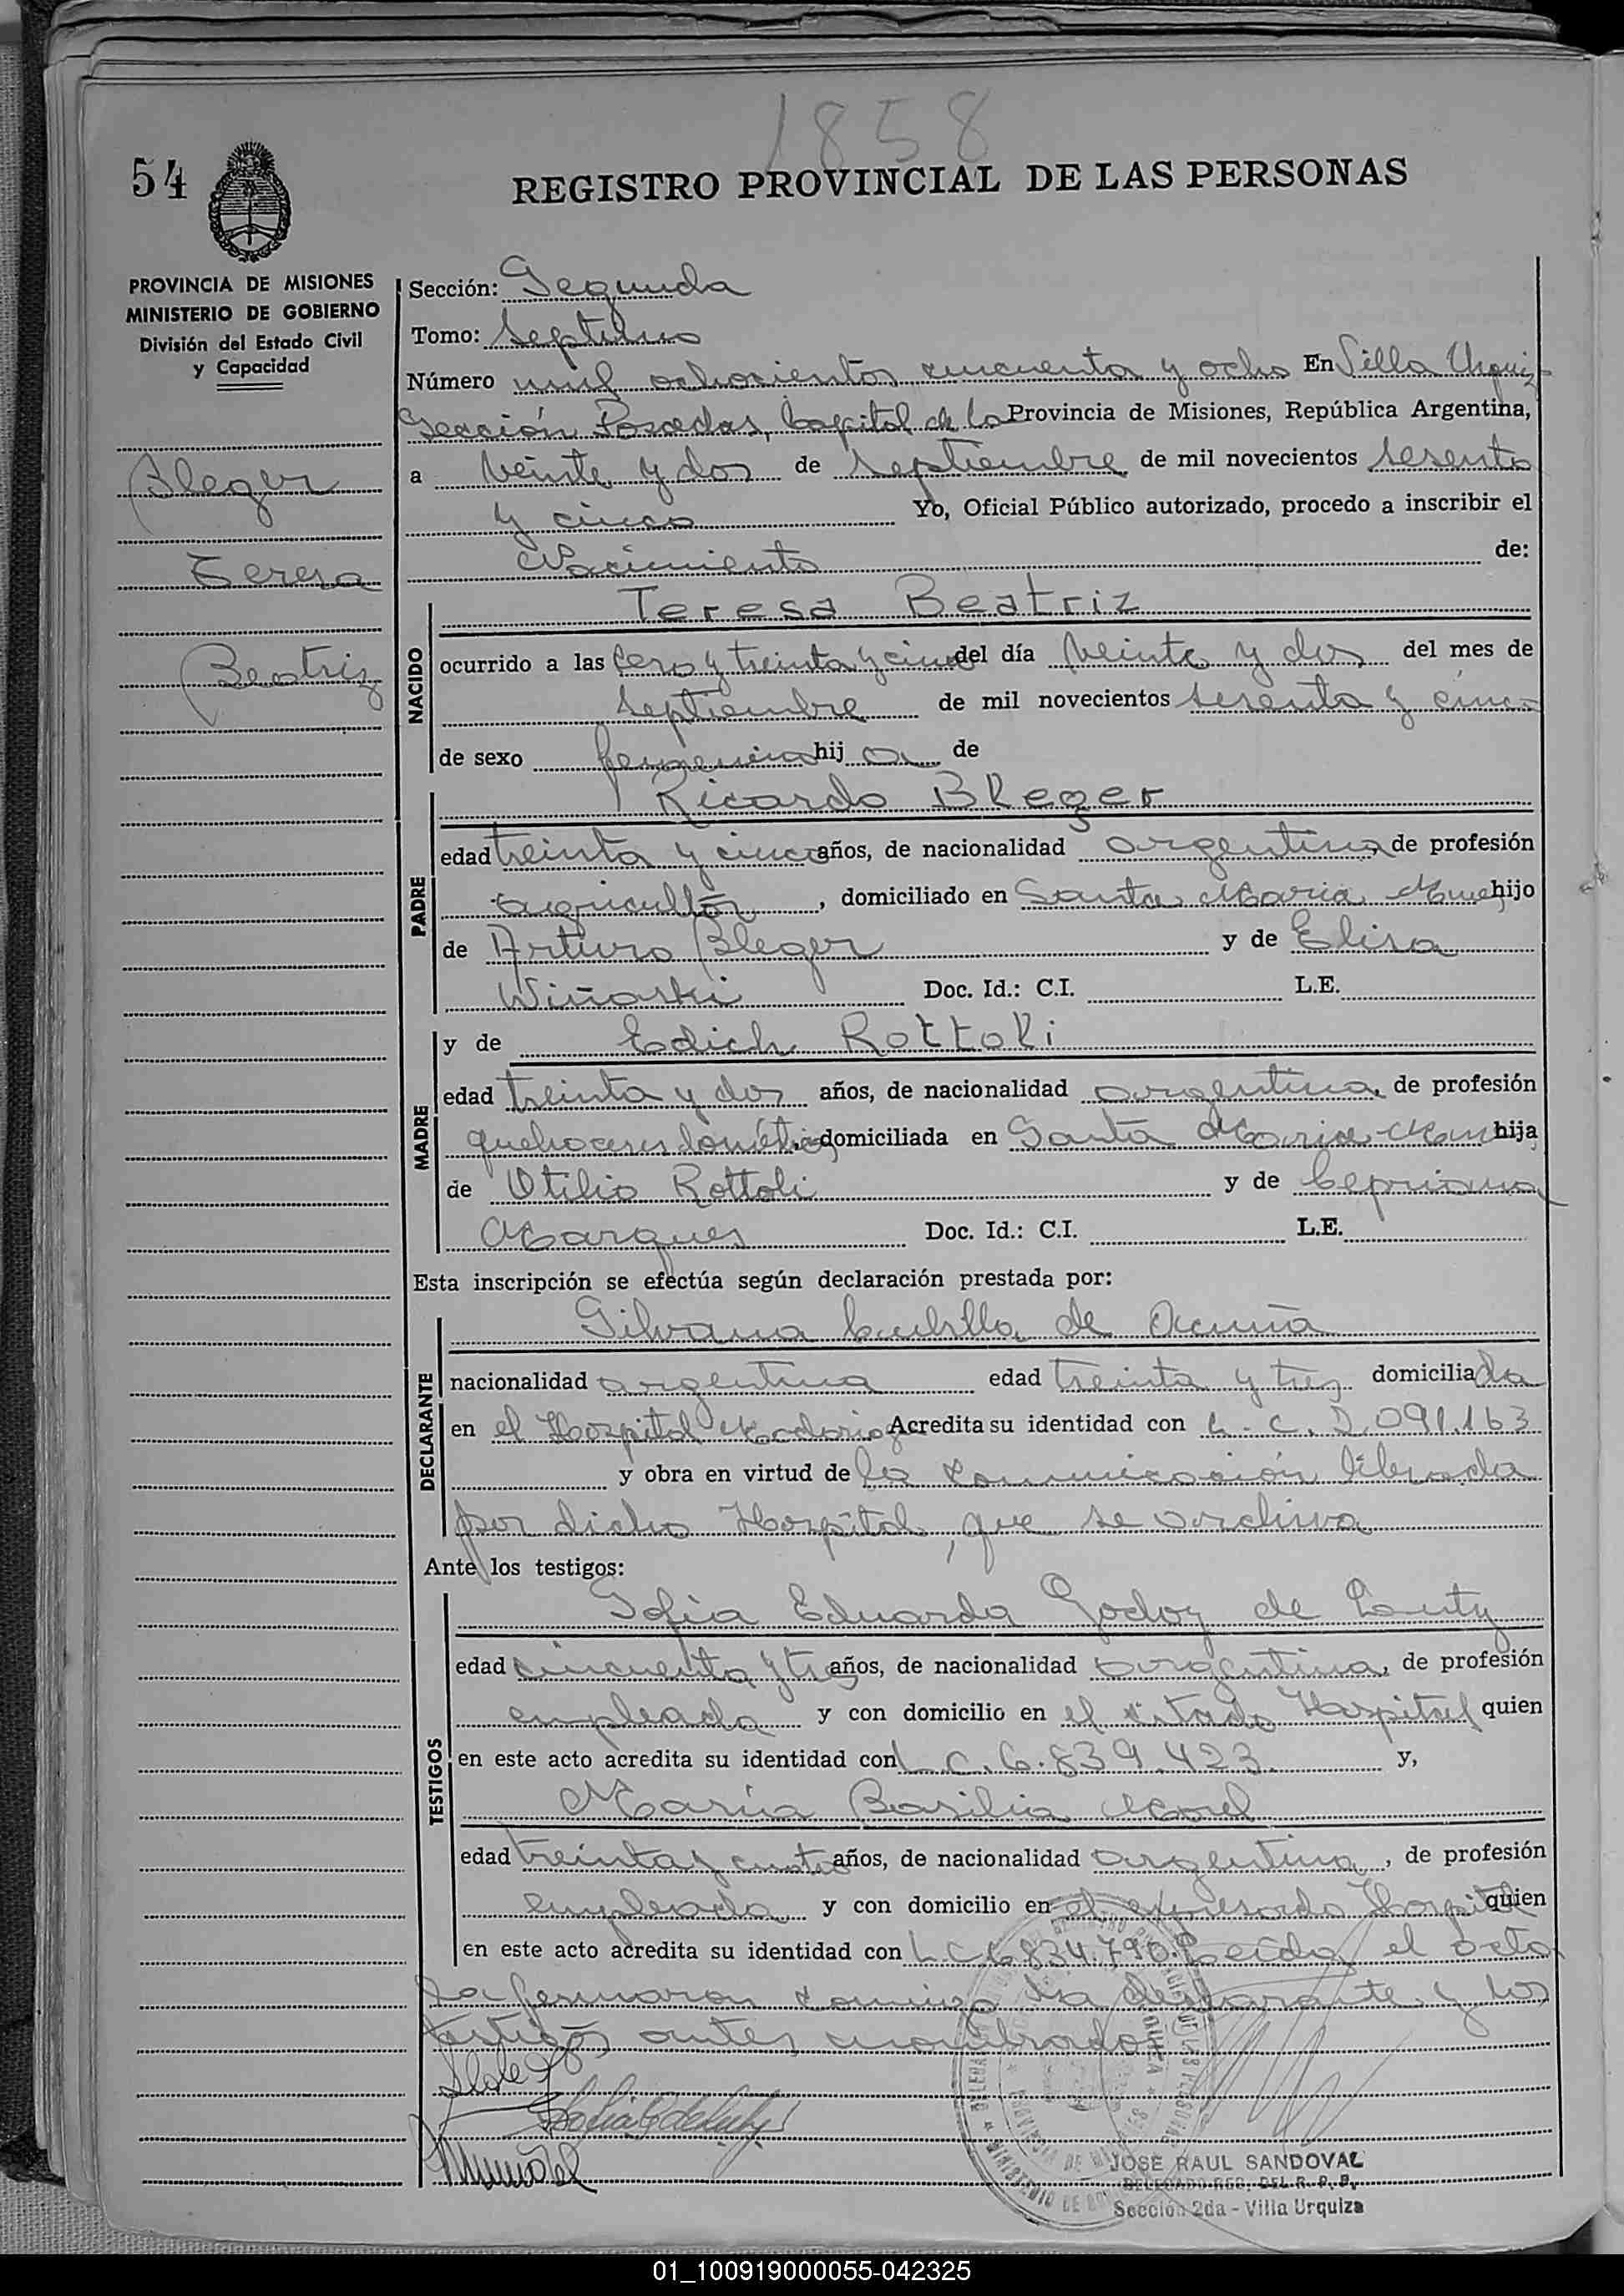 1858
54
REGISTRO PROVINCIAL DE LAS PERSONAS
PROVINCIA DE MISIONES
MINISTERIO DE GOBIERNO
División del Estado Civil
y Capacidad
Bleger
Teresa
Beatriz
Sección: Segunda
Tomo: Septimo
Número mil ochocientos cincuenta y ocho En Villa Urquiz
Sección Posadas, Capital de la Provincia de Misiones, República Argentina,
a veinte y dos de Septiembre de mil novecientos sesenta
y cinco Yo, Oficial Público autorizado, procedo a inscribir el
Nacimiento de:
NACIDO
Teresa Beatriz
ocurrido a las cero y treinta y cinco del día veinte y dos del mes de
septiembre de mil novecientos sesenta y cinco
de sexo femenino hij a de
PADRE
Ricardo Bleger
edad treinta y cinco años, de nacionalidad argentina de profesión
agricultor, domiciliado en Santa Maria hijo
de Arturo Bleger y de Elisa
Wiñarki Doc. Id.: C.I. L.E.
MADRE
y de Edich Rottoli
edad treinta y dos años, de nacionalidad argentina, de profesión
quehaceres domésticos domiciliada en Santa Maria hija
de Otilio Rottoli y de Cepriana
Marques Doc. Id.: C.I. L.E.
Esta inscripción se efectúa según declaración prestada por:
DECLARANTE
Silvana de Acuña
nacionalidad argentina edad treinta y tres domiciliada
en el Hospital Madariaga Acredita su identidad con L. C. 2.091.163
y obra en virtud de la comunicación librada
por dicho Hospital, que se archiva
Ante los testigos:
TESTIGOS
Sofia Eduarda Godoy de
edad cincuenta y tres años, de nacionalidad argentina, de profesión
empleada y con domicilio en el citado Hospital quien
en este acto acredita su identidad con L. C. 6.839.423 y,
Maria Basilia Morel
edad treinta y cuatro años, de nacionalidad argentina, de profesión
empleada y con domicilio en el expresado Hospital quien
en este acto acredita su identidad con L.C 6.834.790. Leida el acta
la firmaron conmigo la declarante y los
testigos antes nombrados
JOSE RAUL SANDOVAL
DELEGADO REG. DEL R. P. P.
Sección 2da - Villa Urquiza
01_100919000055-042325